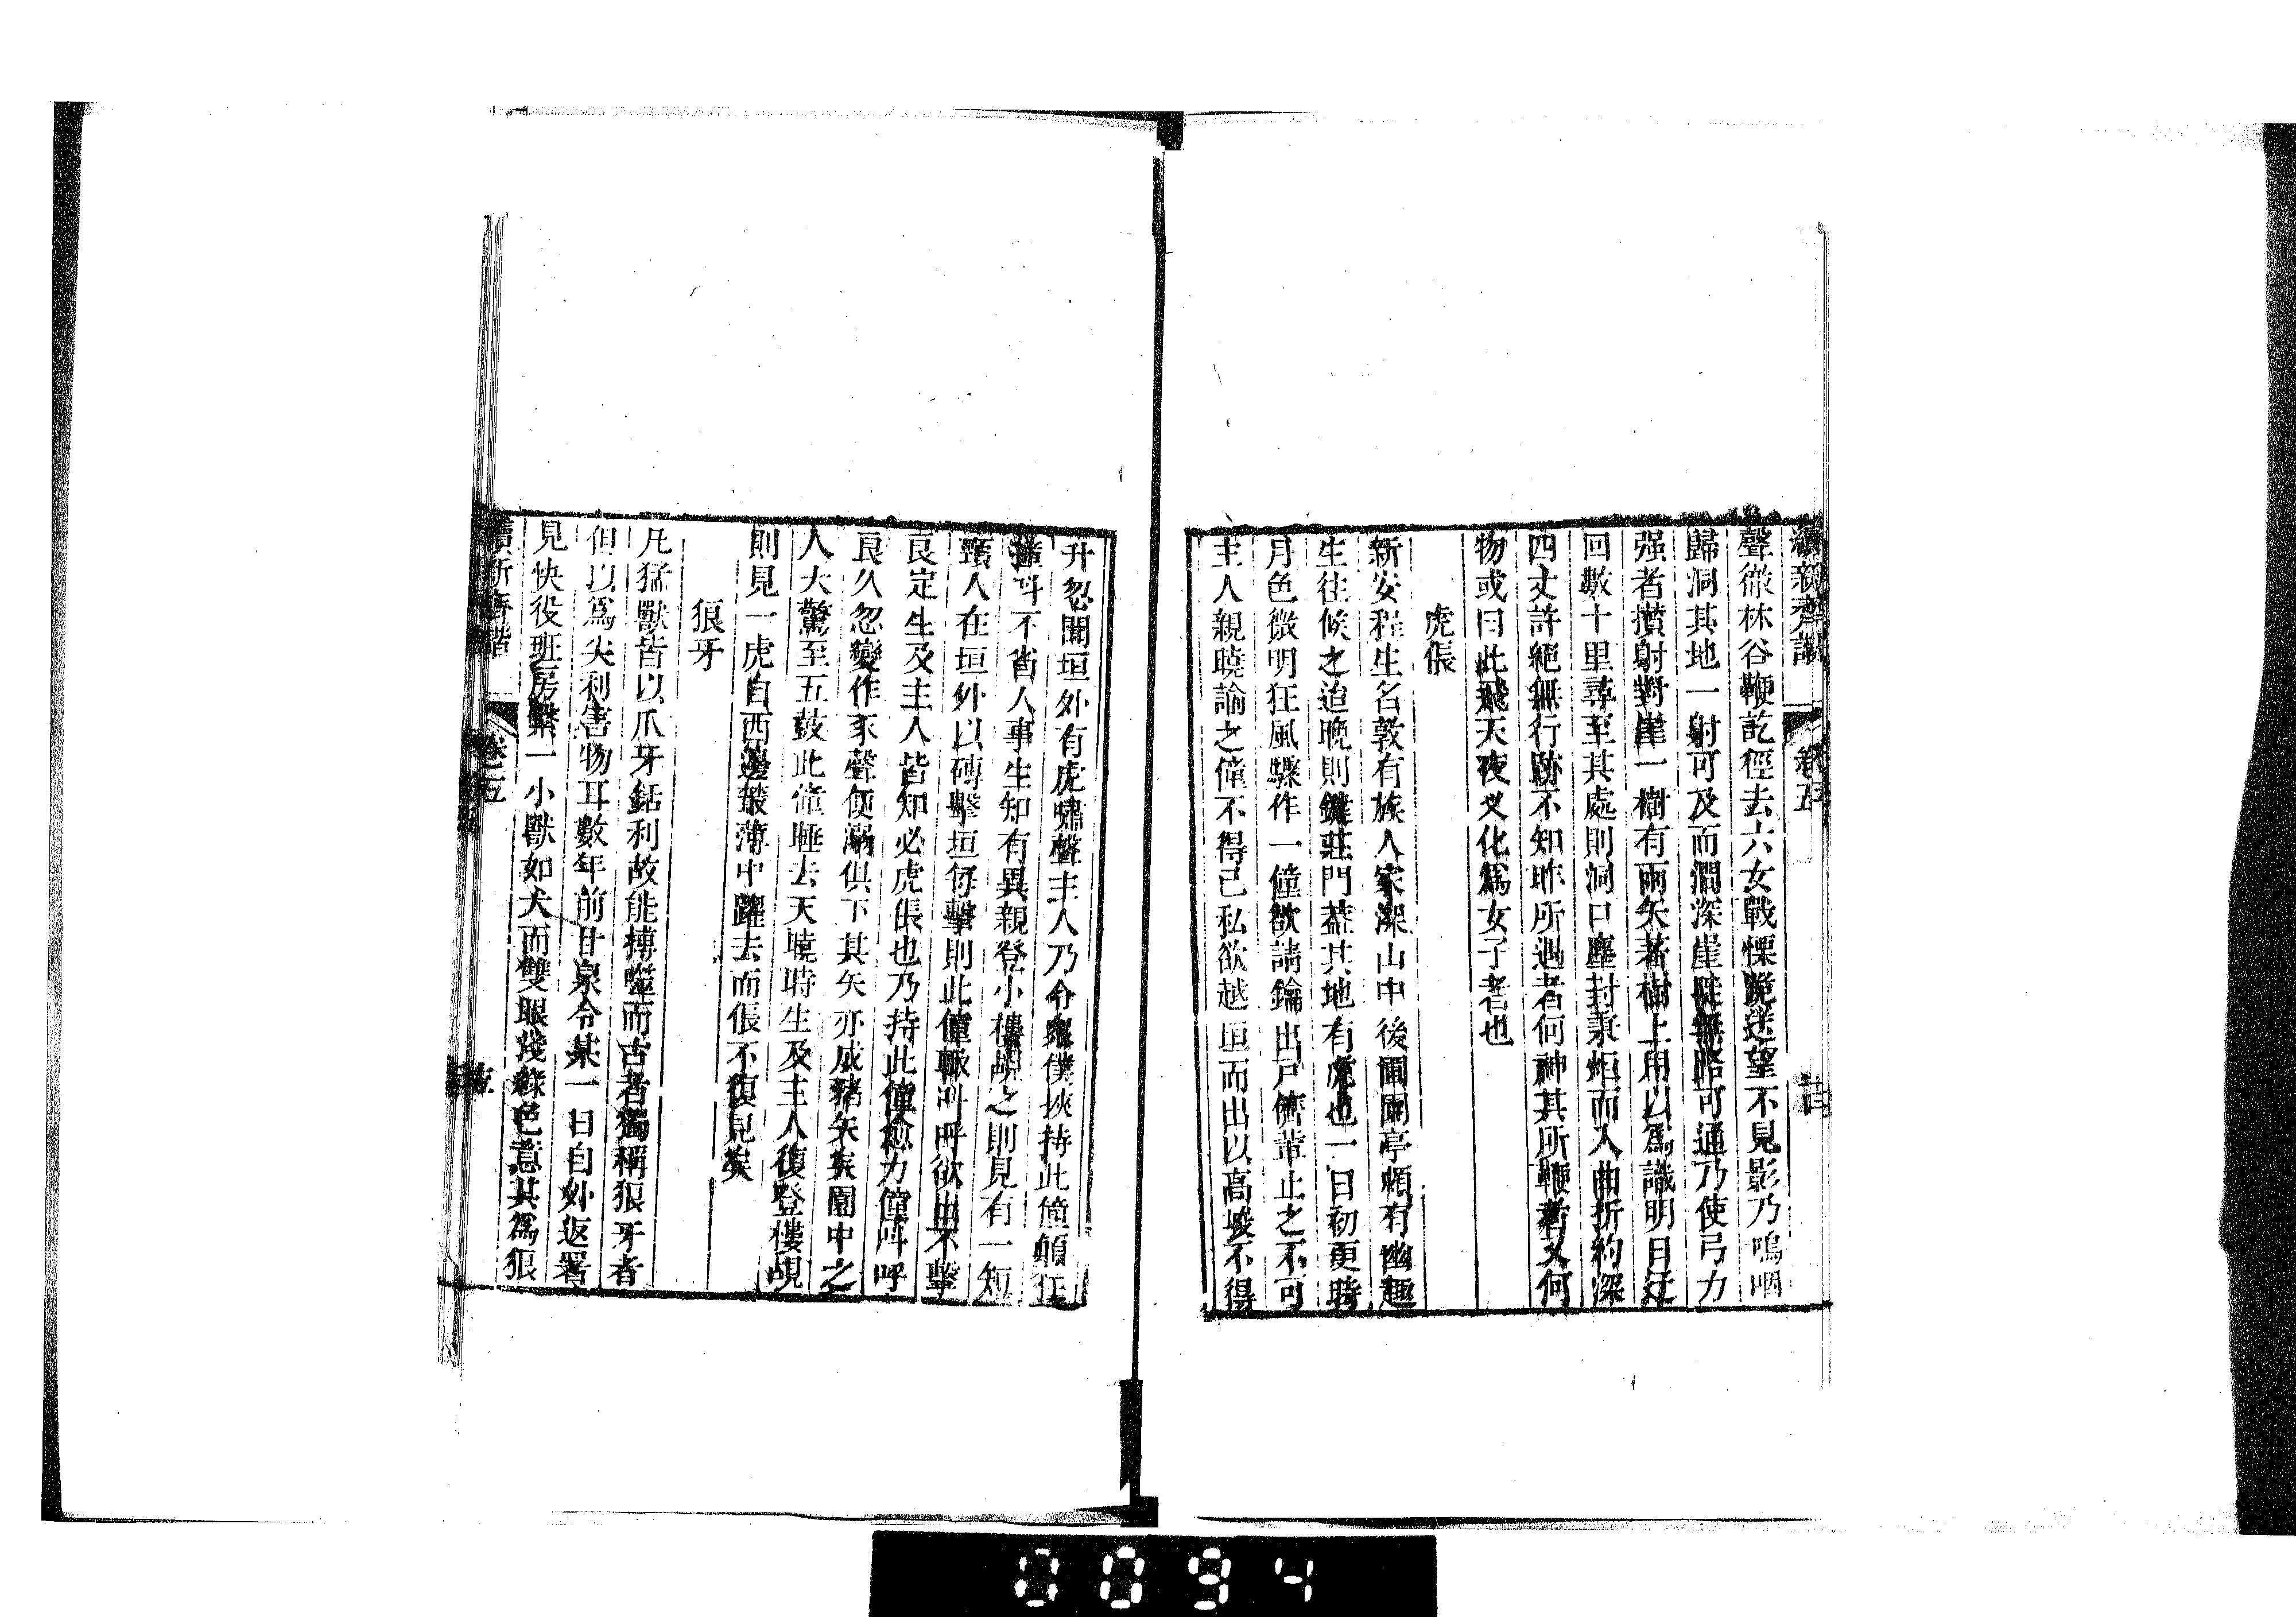 續新齊諧
卷五
聲徹林谷鞭訖徑去六女戰慄跪送望不見影乃嗚咽
歸洞其地一射可及而澗深崖陡無路可通乃使弓力
强者攢射對崖一樹有兩矢著樹上用以爲識明日迂
回數十里尋至其處則洞口塵封秉炬而入曲折約深
四丈許絕無行跡不知昨所遇者何神其所鞭者又何
物或曰此飛天夜叉化爲女子者也
虎倀
新安程生名敦有族人家深山中後圃園亭頗有幽趣
生往候之迨晚則鍵莊門葢其地有虎也一日初更時
月色微明狂風驟作一僮欲請鑰出戸儕輩止之不可
主人親曉諭之僮不得已私欲越垣而出以高峻不得
升忽聞垣外有虎嘯聲主人乃令衆僕挾持此僮顛狂
撞叫不省人事生知有異親登小樓覘之則見有一短
頸人在垣外以磚擊垣每擊則此僮輙叫呼欲出不擊
良定生及主人皆知必虎倀也乃持此僮愈力僮叫呼
良久忽變作豕聲便溺俱下其矢亦成豬矢矣園中之
人大驚至五鼓此僮睡去天曉時生及主人復登樓覘
則見一虎自西邊叢薄中躍去而倀不復見矣
狼牙
凡猛獸皆以爪牙銛利故能搏噬而古者獨稱狼牙者
但以爲尖利害物耳數年前甘泉令某一日自外返署
見快役班房繫一小獸如犬而雙眼淺綠色意其爲狼
續新齊諧
卷五
0094